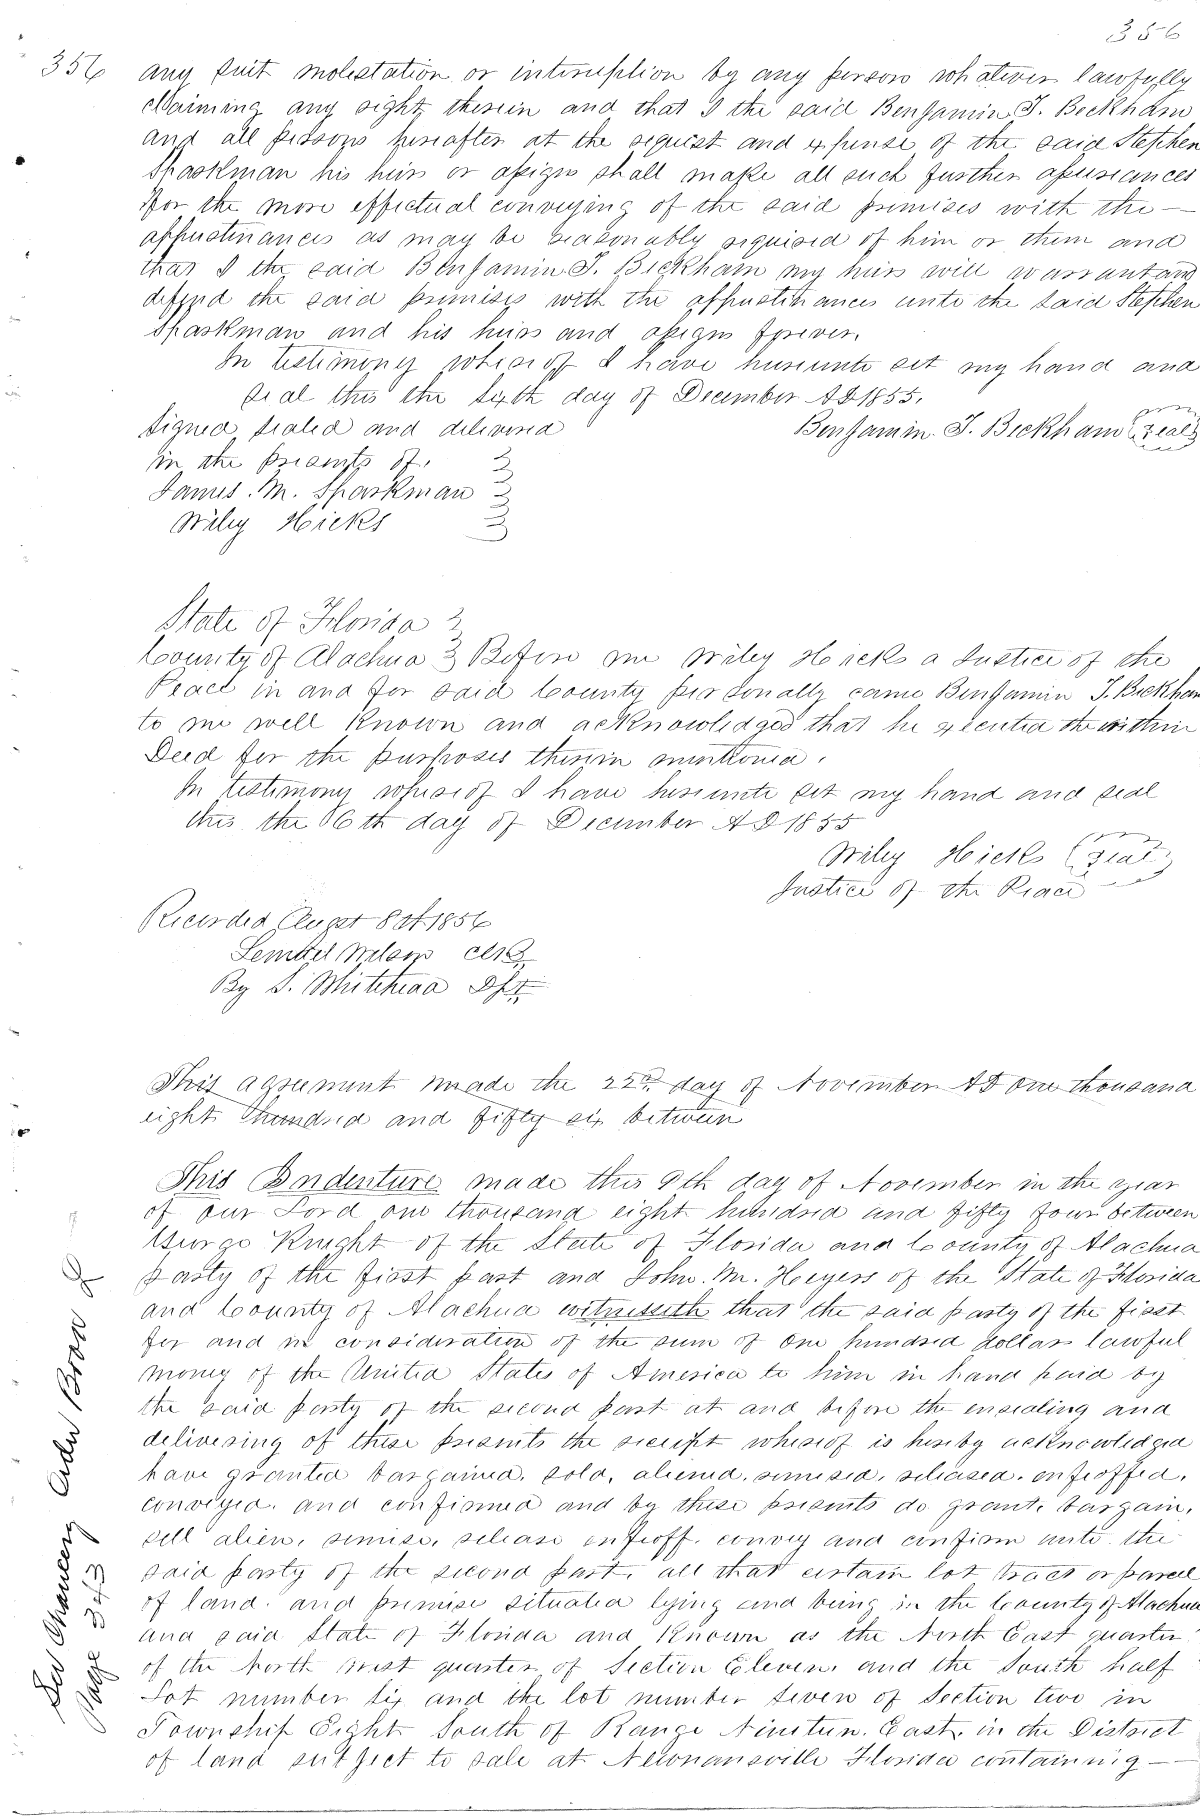 356
356
any suit molestation or interruption by any person whatever lawfully
claiming any right therein and that I the said Benjamin T. Beckham
and all persons hereafter at the request and expense of the said Stephen
Sparkman his heirs or assigns shall make all such further assurances
for the more effectual conveying of the said premises with the —
appurtinances as may be reasonably required of him or them and
that I the said Benjamin T. Beckham my heirs will warrant and
defend the said premises with the appurtinances unto the said Stephen
Sparkman and his heirs and assigns forever.
In testimony whereof I have hereunto set my hand and
seal this the sixth day of December AD 1855.
Signed sealed and delivered Benjamin. T. Beckham (seal)
in the presents of.
James. M. Sparkman
Wiley Hicks
State of Florida
County of Alachua Before me Wiley Hicks a Justice of the
Peace in and for said County personally came Benjamin T. Beckham
to me well known and acknowledged that he executed the within
Deed for the purposes therein mentioned.
In testimony whereof I have hereunto set my hand and seal
this the 6th day of December AD 1855
Wiley Hicks (seal)
Justice of the Peace
Recorded August 8th 1856
Lemuel Wilson Clk
By S. Whitehead Dpt.
This agreement made the 22nd day of November AD one thousand
eight hundred and fifty six between
This Indenture made this 9th day of November in the year
of our Lord one thousand eight hundred and fifty four between
George Knight of the State of Florida and County of Alachua
party of the first part and John. M. Heyers of the State of Florida
and County of Alachua witnesseth that the said party of the first
for and in consideration of the sum of one hundred dollars lawful
money of the United States of America to him in hand paid by
the said party of the second part at and before the ensealing and
delivering of these presents the receipt whereof is hereby acknowledged
have granted bargained, sold, aliened, remised, released, enfeoffed,
conveyed, and confirmed and by these presents do grant, bargain,
sell alien, remise, release enfeoff. convey and confirm unto the
said party of the second part, all that certain lot tract or parcel
of land. and premise situated lying and being in the County of Alachua
and said State of Florida and known as the North East quarter
of the North west quarter of Section Eleven, and the South half
Lot number six and the lot number seven of Section two in
Township Eight South of Range Nineteen. East, in the District
of land subject to sale at Newnansville Florida containing —
See Chancery Order Book
Page 343